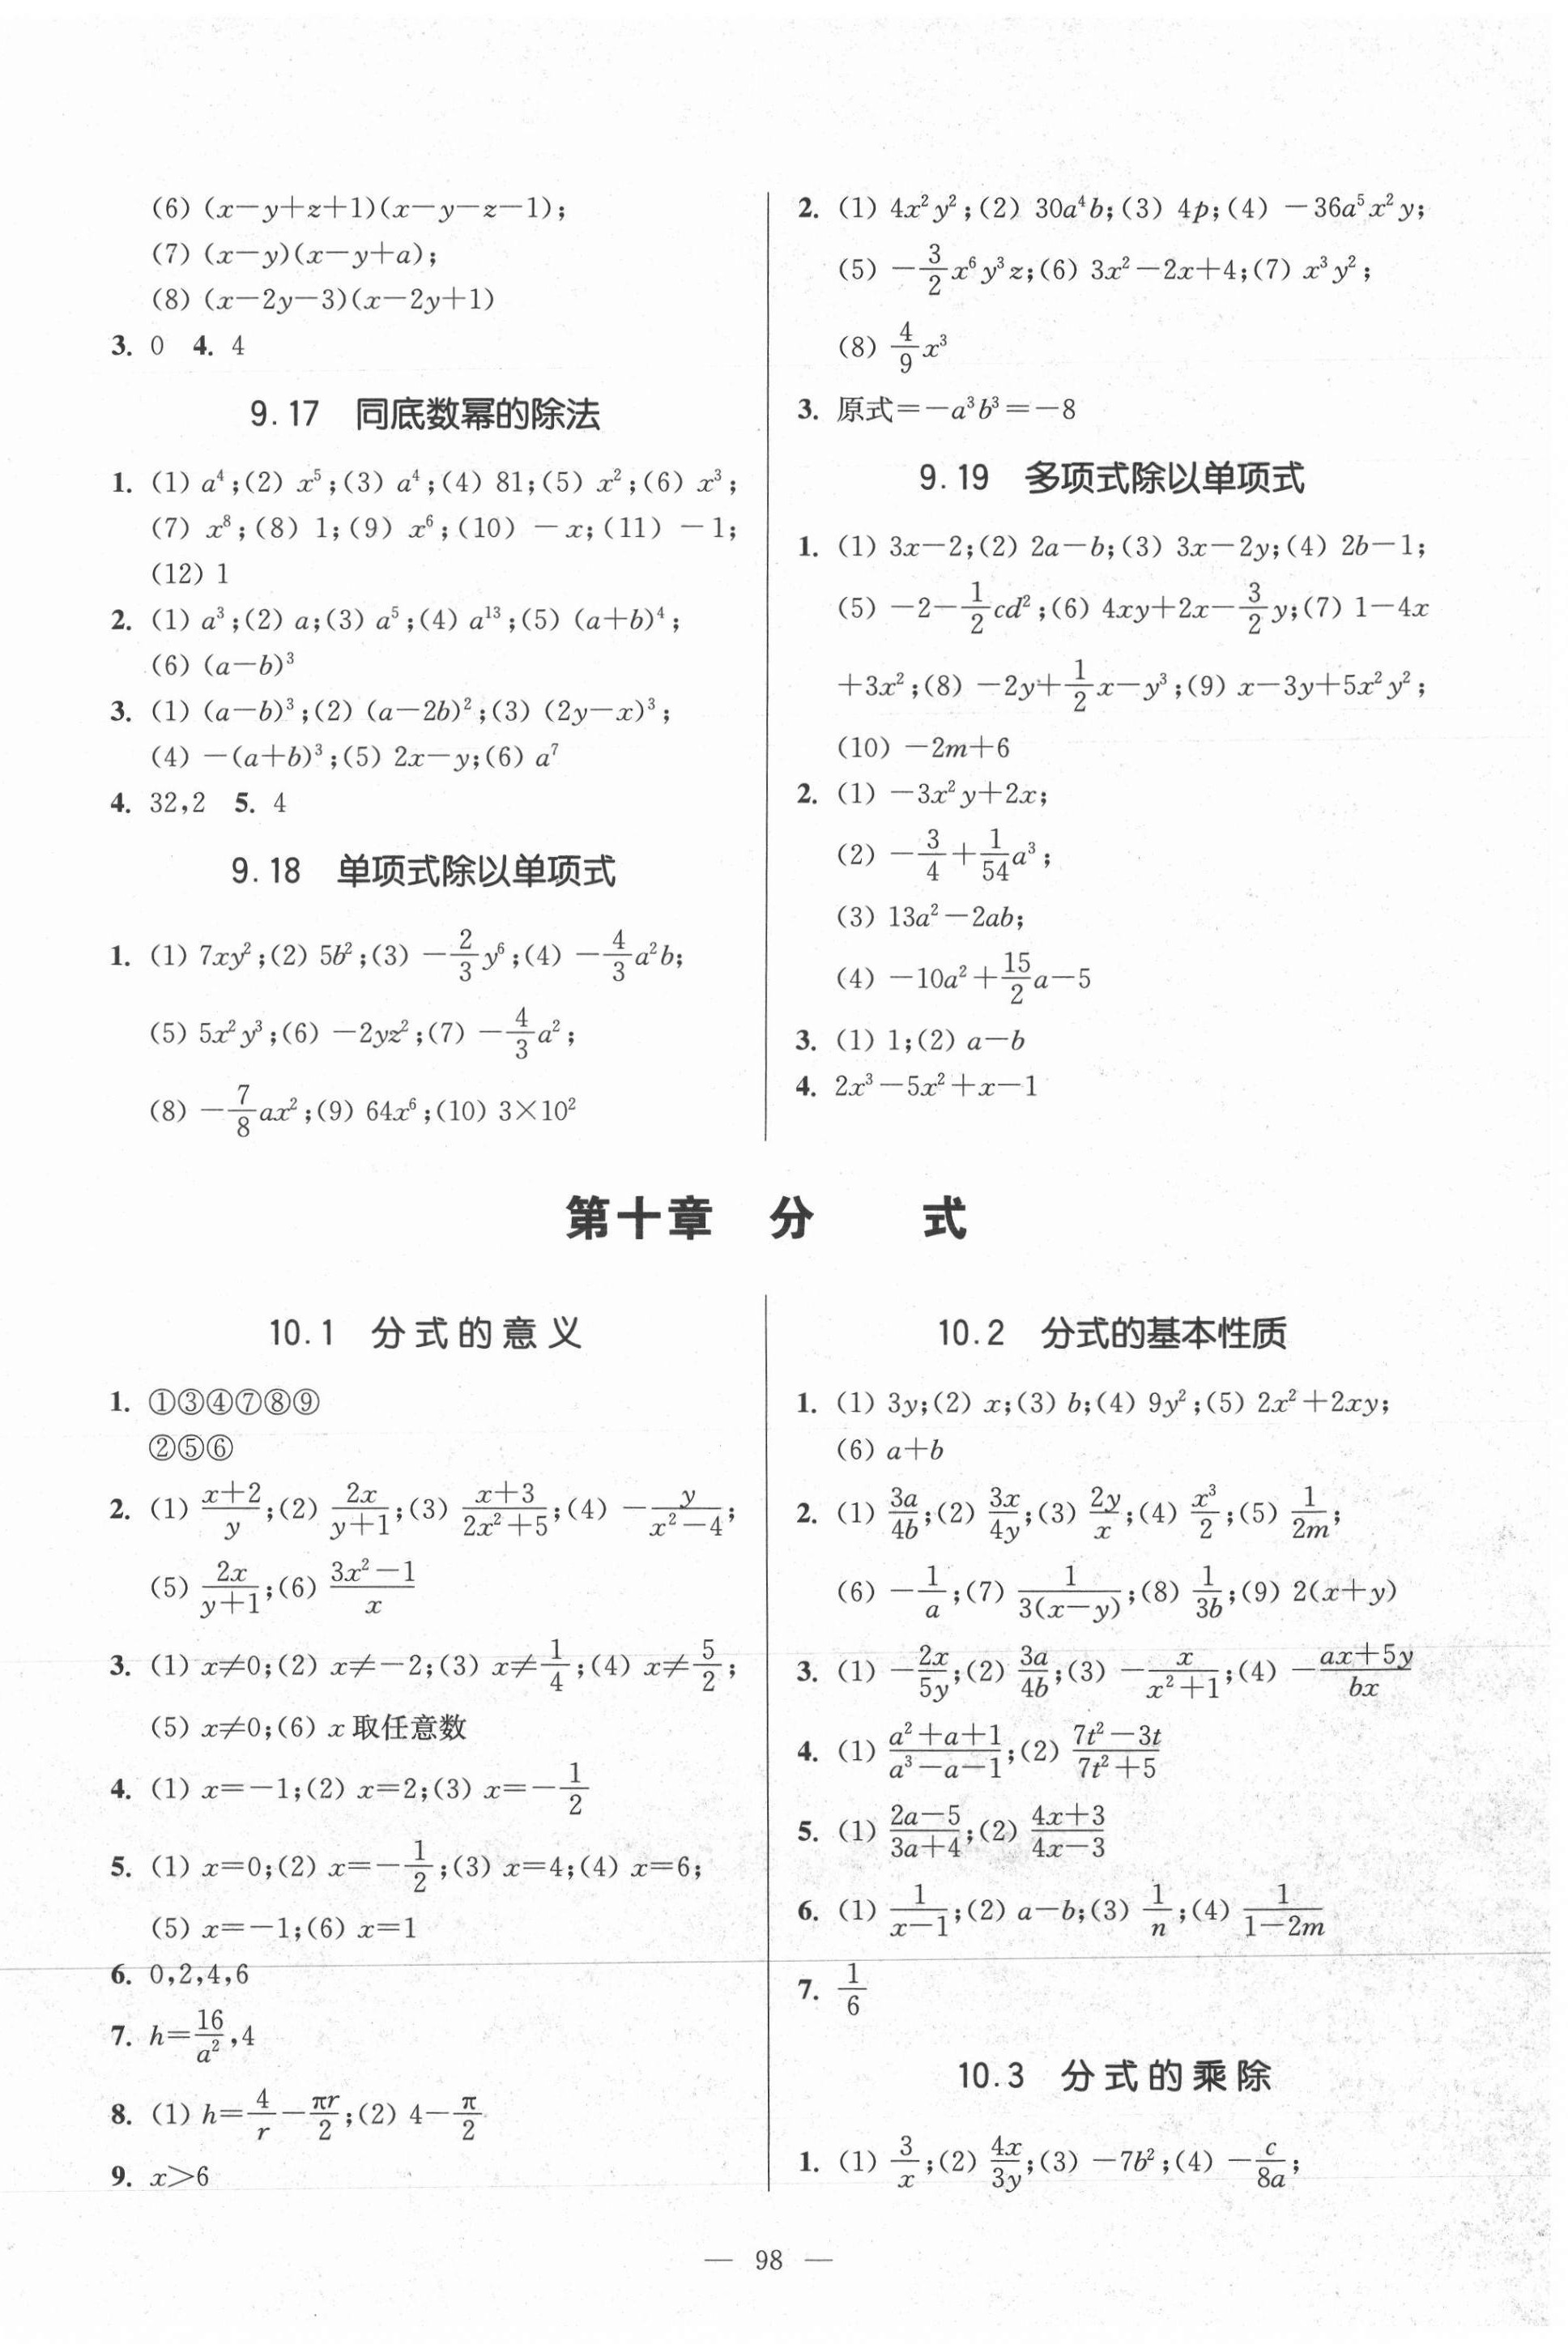 (6) (x－y＋z＋1)(x－y－z－1);
(7) (x－y)(x－y＋a);
(8) (x－2y－3)(x－2y＋1)
3. 0 4. 4
9.17 同底数幂的除法
1. (1) a⁴;(2) x⁵;(3) a⁴;(4) 81;(5) x²;(6) x³;
(7) x⁸;(8) 1;(9) x⁶;(10) －x;(11) －1;
(12) 1
2. (1) a³;(2) a;(3) a⁵;(4) a¹³;(5) (a＋b)⁴;
(6) (a－b)³
3. (1) (a－b)³;(2) (a－2b)²;(3) (2y－x)³;
(4) －(a＋b)³;(5) 2x－y;(6) a⁷
4. 32,2 5. 4
9.18 单项式除以单项式
1. (1) 7xy²;(2) 5b²;(3) －2/3 y⁶;(4) －4/3 a²b;
(5) 5x²y³;(6) －2yz²;(7) －4/3 a²;
(8) －7/8 ax²;(9) 64x⁶;(10) 3×10²
2. (1) 4x²y²;(2) 30a⁴b;(3) 4p;(4) －36a⁵x²y;
(5) －3/2 x⁶y³z;(6) 3x²－2x＋4;(7) x³y²;
(8) 4/9 x³
3. 原式＝－a³b³＝－8
9.19 多项式除以单项式
1. (1) 3x－2;(2) 2a－b;(3) 3x－2y;(4) 2b－1;
(5) －2－1/2 cd²;(6) 4xy＋2x－3/2 y;(7) 1－4x
＋3x²;(8) －2y＋1/2 x－y³;(9) x－3y＋5x²y²;
(10) －2m＋6
2. (1) －3x²y＋2x;
(2) －3/4＋1/54 a³;
(3) 13a²－2ab;
(4) －10a²＋15/2 a－5
3. (1) 1;(2) a－b
4. 2x³－5x²＋x－1
第十章 分 式
10.1 分式的意义
1. ①③④⑦⑧⑨
②⑤⑥
2. (1) (x＋2)/y;(2) 2x/(y＋1);(3) (x＋3)/(2x²＋5);(4) －y/(x²－4);
(5) 2x/(y＋1);(6) (3x²－1)/x
3. (1) x≠0;(2) x≠－2;(3) x≠1/4;(4) x≠5/2;
(5) x≠0;(6) x取任意数
4. (1) x＝－1;(2) x＝2;(3) x＝－1/2
5. (1) x＝0;(2) x＝－1/2;(3) x＝4;(4) x＝6;
(5) x＝－1;(6) x＝1
6. 0,2,4,6
7. h＝16/a²,4
8. (1) h＝4/r－πr/2;(2) 4－π/2
9. x＞6
10.2 分式的基本性质
1. (1) 3y;(2) x;(3) b;(4) 9y²;(5) 2x²＋2xy;
(6) a＋b
2. (1) 3a/4b;(2) 3x/4y;(3) 2y/x;(4) x³/2;(5) 1/2m;
(6) －1/a;(7) 1/3(x－y);(8) 1/3b;(9) 2(x＋y)
3. (1) －2x/5y;(2) 3a/4b;(3) －x/(x²＋1);(4) －(ax＋5y)/bx
4. (1) (a²＋a＋1)/(a³－a－1);(2) (7t²－3t)/(7t²＋5)
5. (1) (2a－5)/(3a＋4);(2) (4x＋3)/(4x－3)
6. (1) 1/(x－1);(2) a－b;(3) 1/n;(4) 1/(1－2m)
7. 1/6
10.3 分式的乘除
1. (1) 3/x;(2) 4x/3y;(3) －7b²;(4) －c/8a;
— 98 —